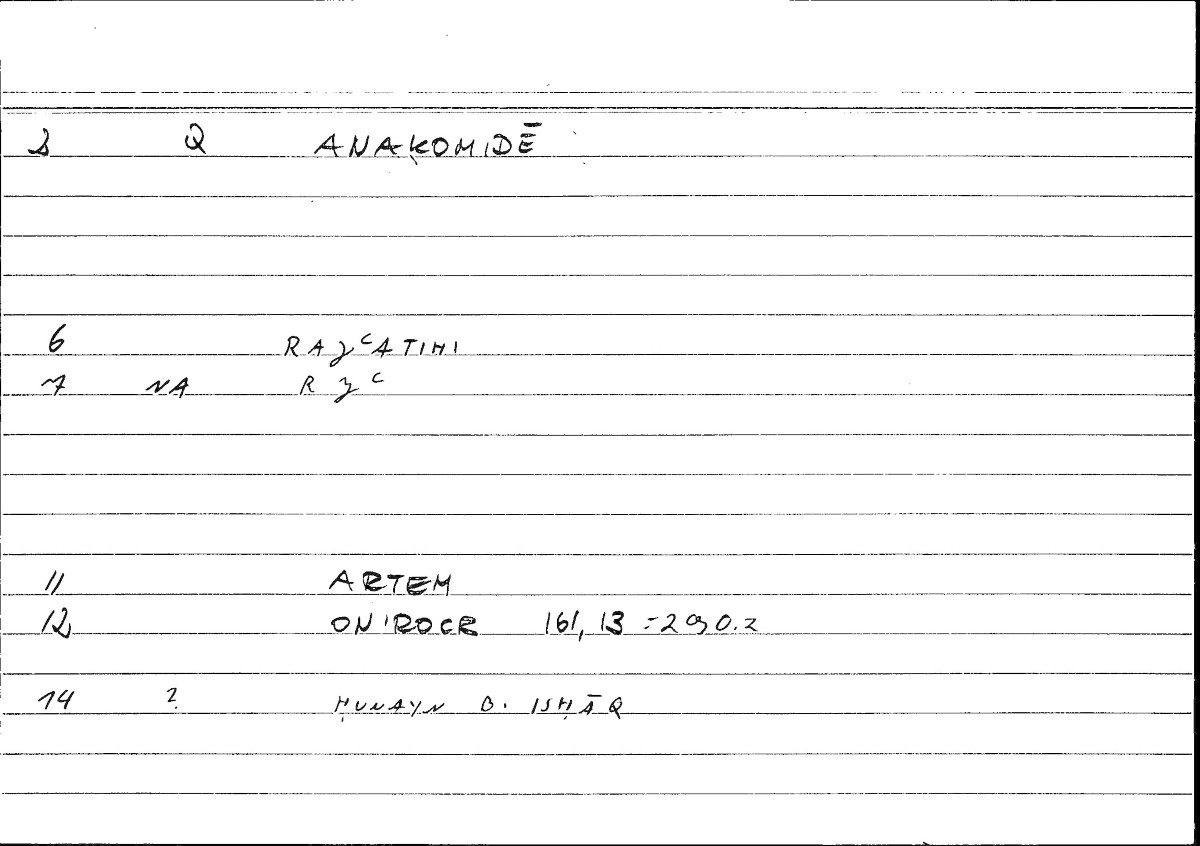 2 Q ANAKOMIDĒ
6 RAJʿATIHI
7 NA R J ʿ
11 ARTEM
12 ONIROCR 161, 13 = 290.2
14 ? ḤUNAYN B. ISḤĀQ